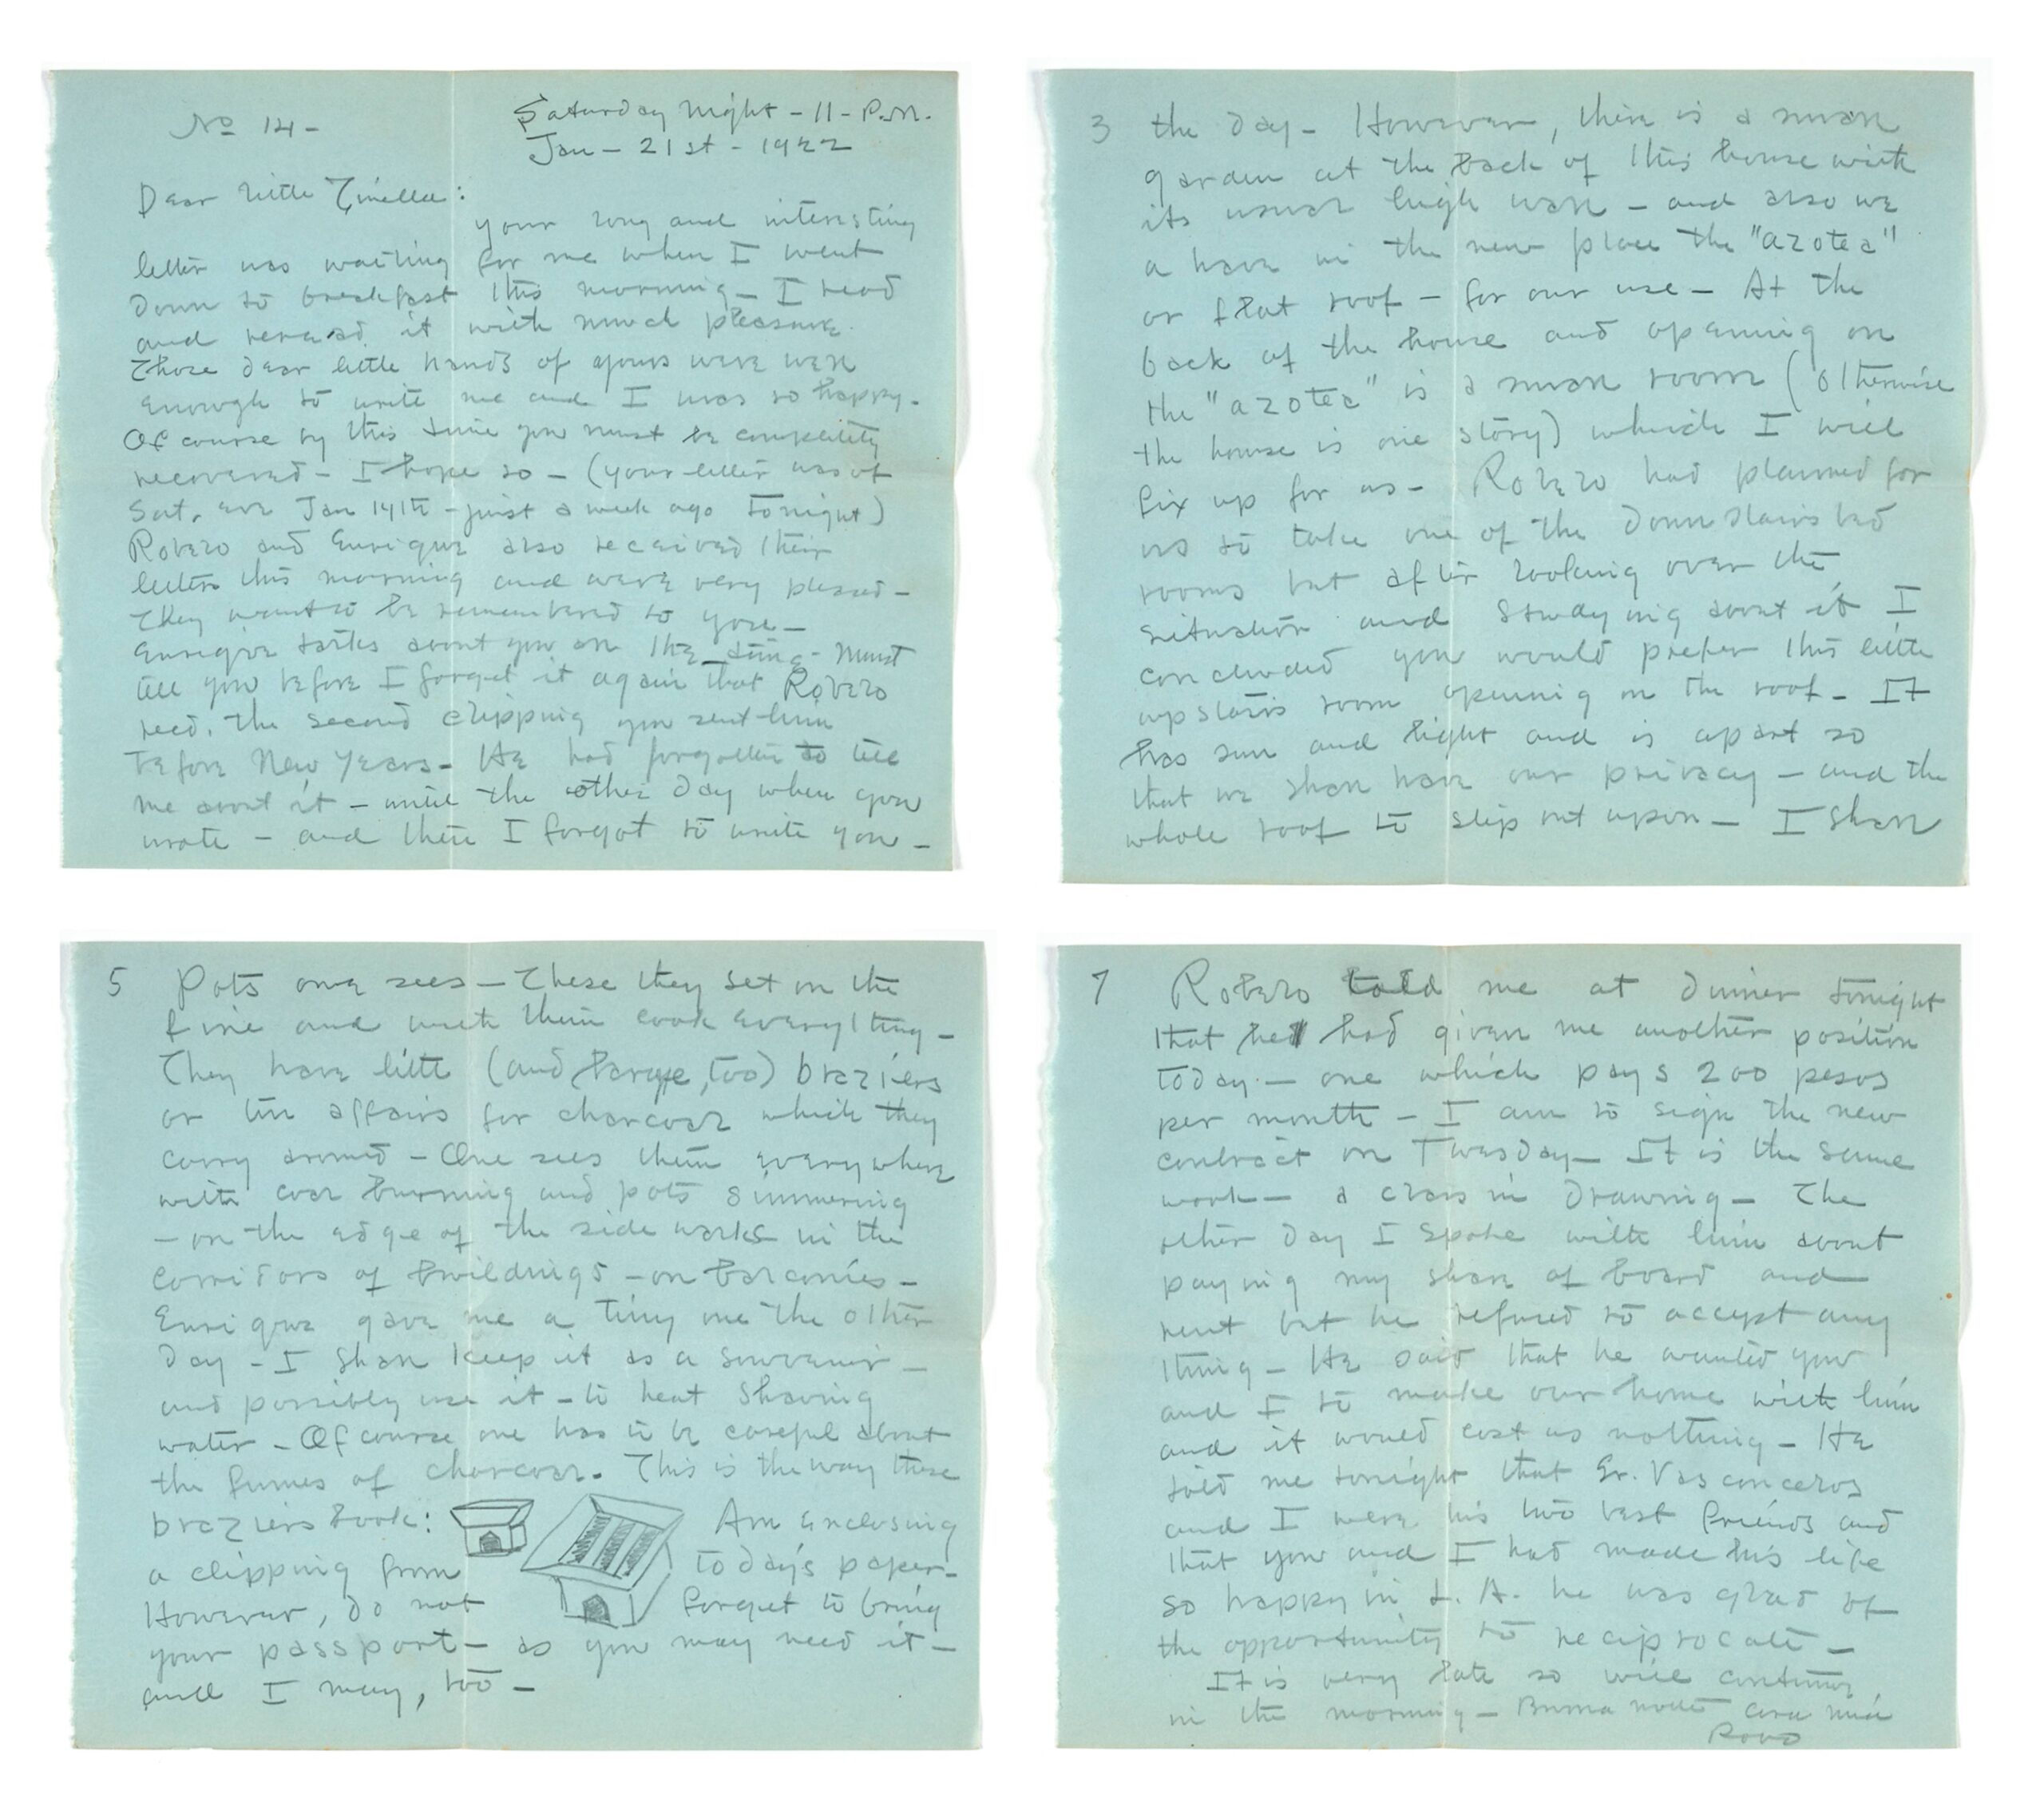 No 14 -
Saturday night - 11 - P.M.
Jan - 21st - 1922
Dear little Tinella:
your long and interesting
letter was waiting for me when I went
down to breakfast this morning - I read
and reread it with much pleasure.
Those dear little hands of yours were well
enough to write me and I was so happy.
Of course by this time you must be completely
recovered - I hope so - (your letter was of
Sat. eve Jan 14th - just a week ago tonight)
Robelo and Enrique also received their
letters this morning and were very pleased -
They want to be remembered to you -
Enrique talks about you all the time - Must
tell you before I forget it again that Robelo
recd. the second clipping you sent him
before New Years - He had forgotten to tell
me about it - until the other day when you
wrote - and then I forgot to write you -
3 the day - However, there is a small
garden at the back of this house with
its usual high wall - and also we
a have in the new place the "azotea"
or flat roof - for our use - At the
back of the house and opening on
the "azotea" is a small room (otherwise
the house is one story) which I will
fix up for us - Robelo had planned for
us to take one of the downstairs bed
rooms but after looking over the
situation and studying about it I
concluded you would prefer this little
upstairs room opening on the roof - It
has sun and light and is apart so
that we shall have our privacy - and the
whole roof to slip out upon - I shall
5 Pots one sees - These they set on the
fire and with them cook everything -
They have little (and large, too) braziers
or tin affairs for charcoal which they
carry around - One sees them everywhere
with coal burning and pots simmering
- on the edge of the side walks in the
corridors of buildings - on balconies -
Enrique gave me a tiny one the other
day - I shall keep it as a souvenir -
and possibly use it - to heat shaving
water - Of course one has to be careful about
the fumes of charcoal. This is the way these
braziers look: Am enclosing
a clipping from today's paper -
However, do not forget to bring
your passport - as you may need it -
and I may, too -
7 Robelo told me at dinner tonight
that he had given me another position
today - one which pays 200 pesos
per month - I am to sign the new
contract on Tuesday - It is the same
work - a class in drawing - The
other day I spoke with him about
paying my share of board and
rent but he refused to accept any
thing - He said that he wanted you
and I to make our home with him
and it would cost us nothing - He
told me tonight that Sr. Vasconcelos
and I were his two best friends and
that you and I had made his life
so happy in L. A. he was glad of
the opportunity to reciprocate -
It is very late so will continue
in the morning - Buona notte cara mia
Robo